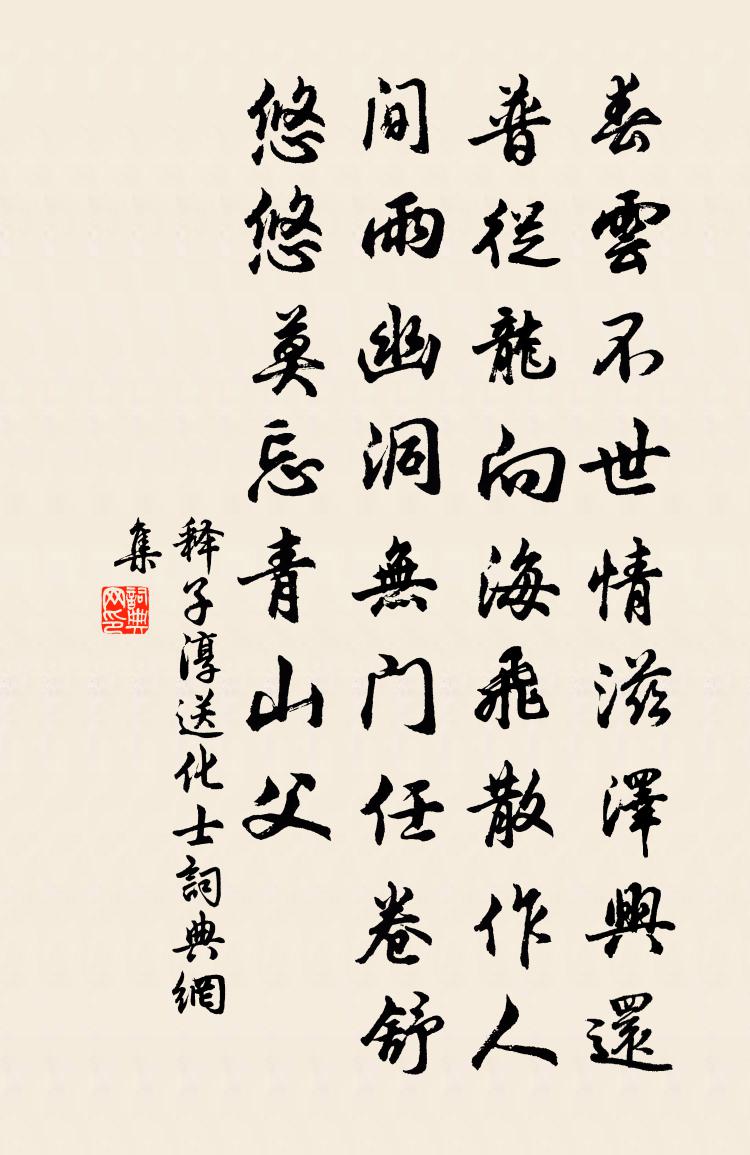 春雲不世情滋澤興還
普從龍向海飛散作人
间雨幽洞無门任卷舒
悠悠莫忘青山父
释子淳送化士詞典網
集
詞典
网印